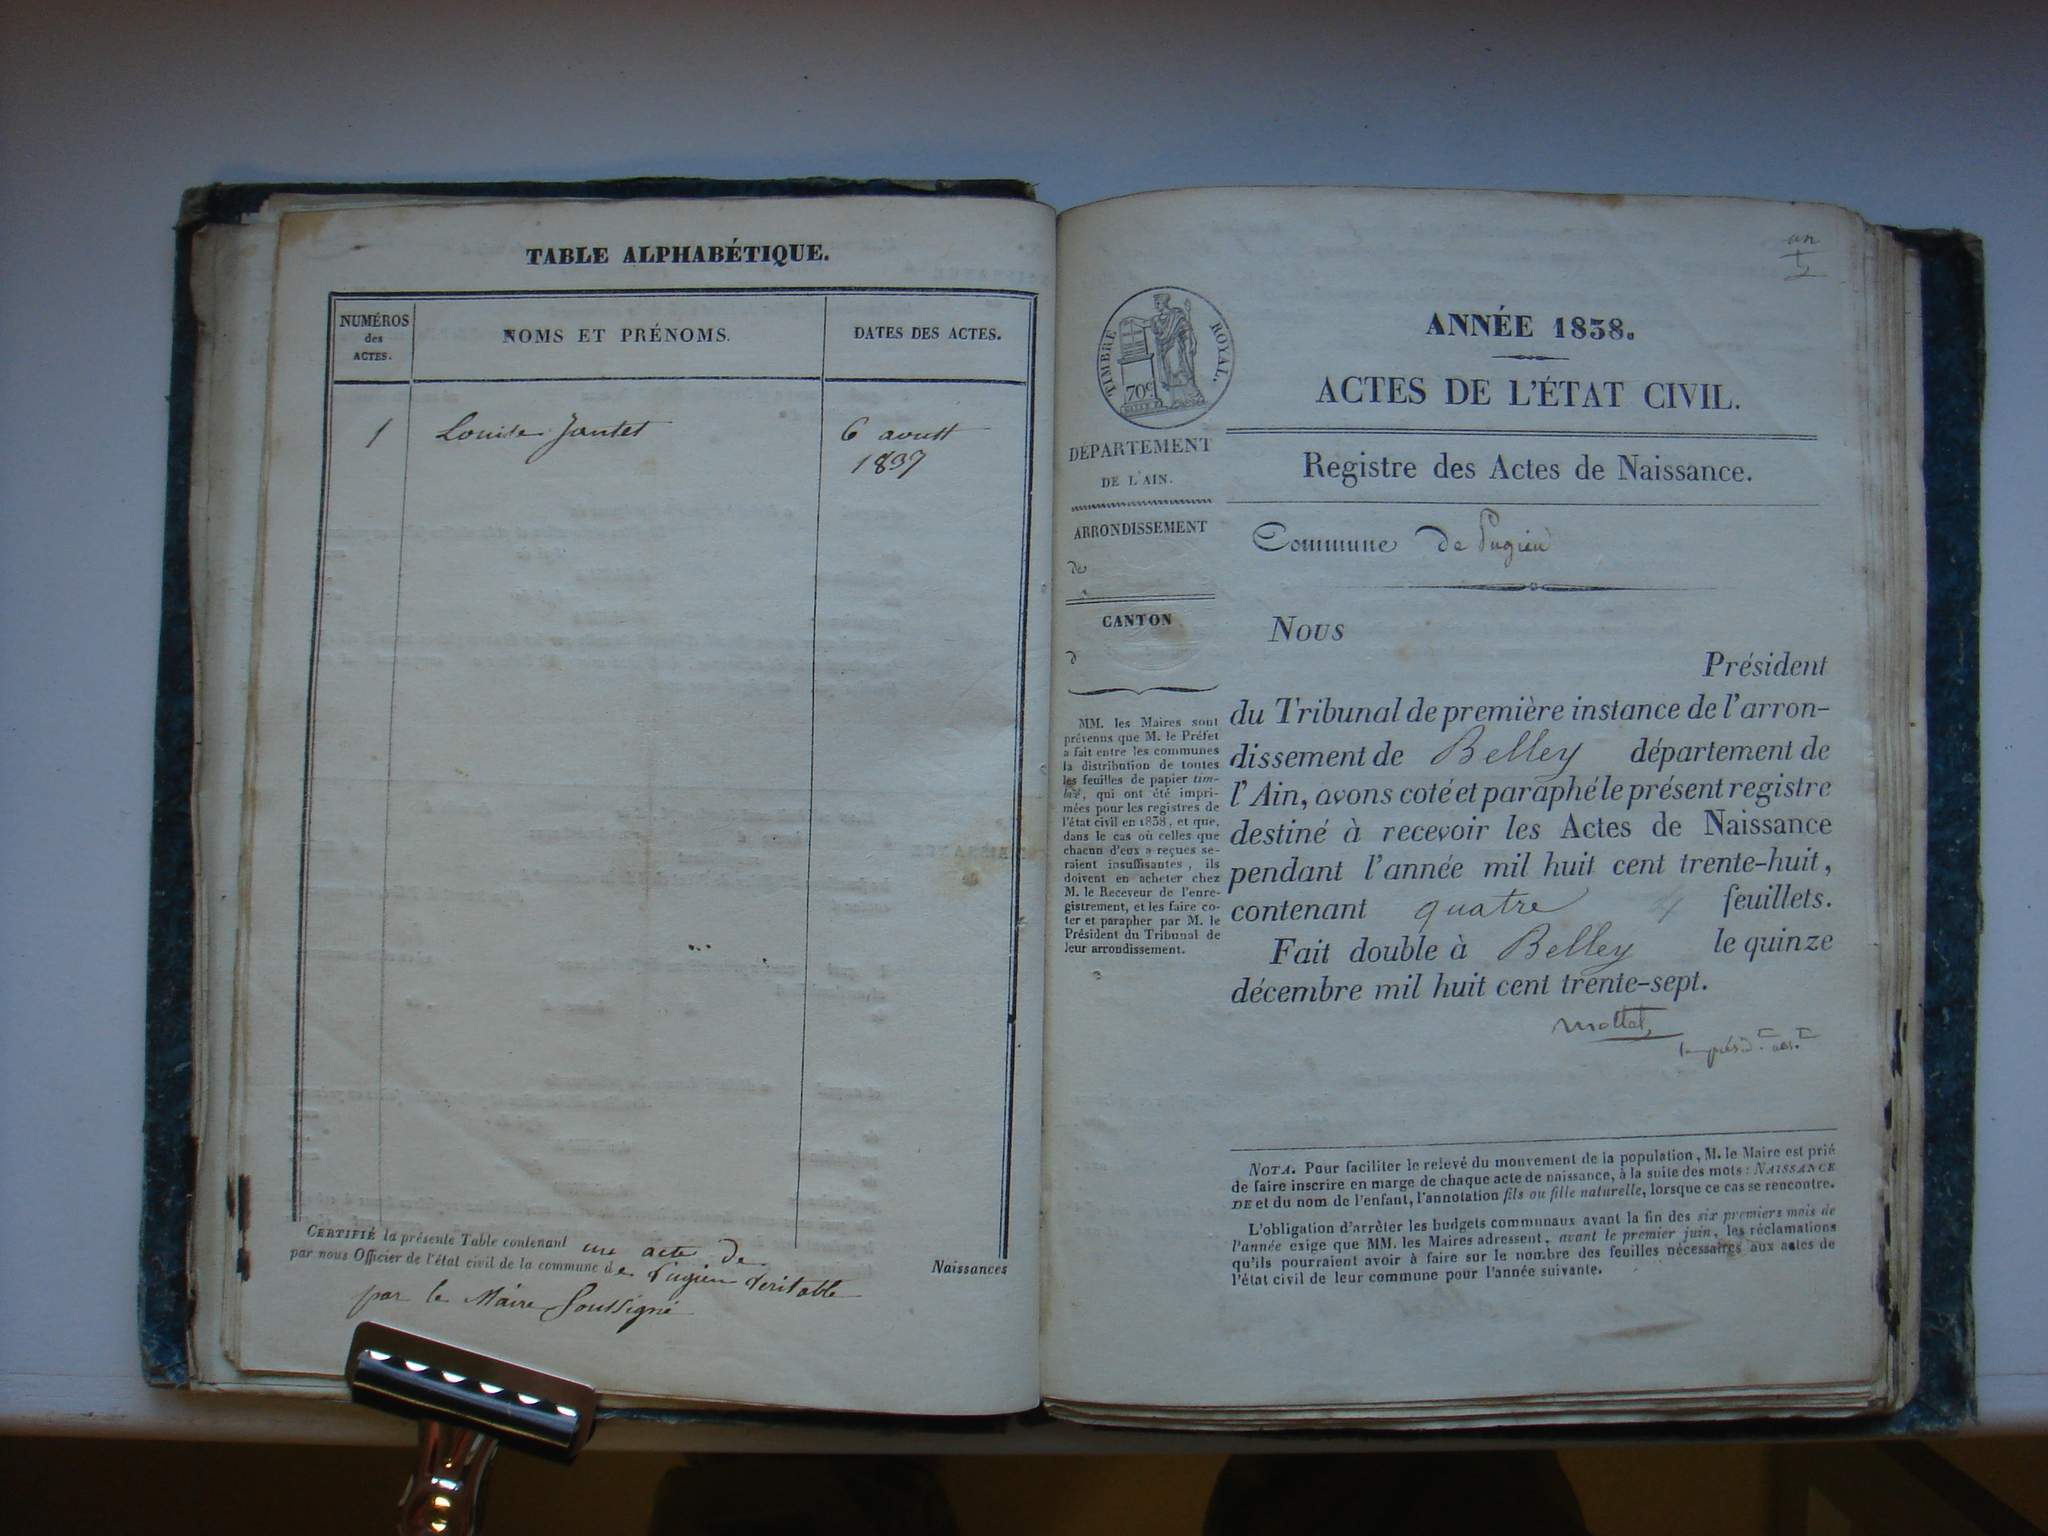 TABLE ALPHABÉTIQUE.
NUMÉROS
des
ACTES.
NOMS ET PRÉNOMS.
DATES DES ACTES.
1 Louise Jantet 6 aoust
1837
CERTIFIÉ la présente Table contenant un acte de Naissances
par nous Officier de l'état civil de la commune de Pugieu Veritable
par le Maire Soussigné
un
TIMBRE ROYAL.
70c.
DÉPARTEMENT
DE L'AIN.
ARRONDISSEMENT
de
CANTON
d
MM. les Maires sont
prévenus que M. le Préfet
a fait entre les communes
la distribution de toutes
les feuilles de papier tim-
bré, qui ont été impri-
mées pour les registres de
l'état civil en 1838, et que,
dans le cas où celles que
chacun d'eux a reçues se-
raient insuffisantes, ils
doivent en acheter chez
M. le Receveur de l'enre-
gistrement, et les faire co-
ter et parapher par M. le
Président du Tribunal de
leur arrondissement.
ANNÉE 1838.
ACTES DE L'ÉTAT CIVIL.
Registre des Actes de Naissance.
Commune de Pugieu
Nous
Président
du Tribunal de première instance de l'arron-
dissement de Belley département de
l'Ain, avons coté et paraphé le présent registre
destiné à recevoir les Actes de Naissance
pendant l'année mil huit cent trente-huit,
contenant quatre 4 feuillets.
Fait double à Belley le quinze
décembre mil huit cent trente-sept.
NOTA. Pour faciliter le relevé du mouvement de la population, M. le Maire est prié
de faire inscrire en marge de chaque acte de naissance, à la suite des mots: NAISSANCE
DE et du nom de l'enfant, l'annotation fils ou fille naturelle, lorsque ce cas se rencontre.
L'obligation d'arrêter les budgets communaux avant la fin des six premiers mois de
l'année exige que MM. les Maires adressent, avant le premier juin, les réclamations
qu'ils pourraient avoir à faire sur le nombre des feuilles nécessaires aux actes de
l'état civil de leur commune pour l'année suivante.